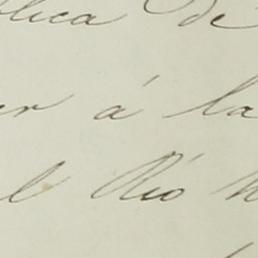 blica de
er á la
el Rio h